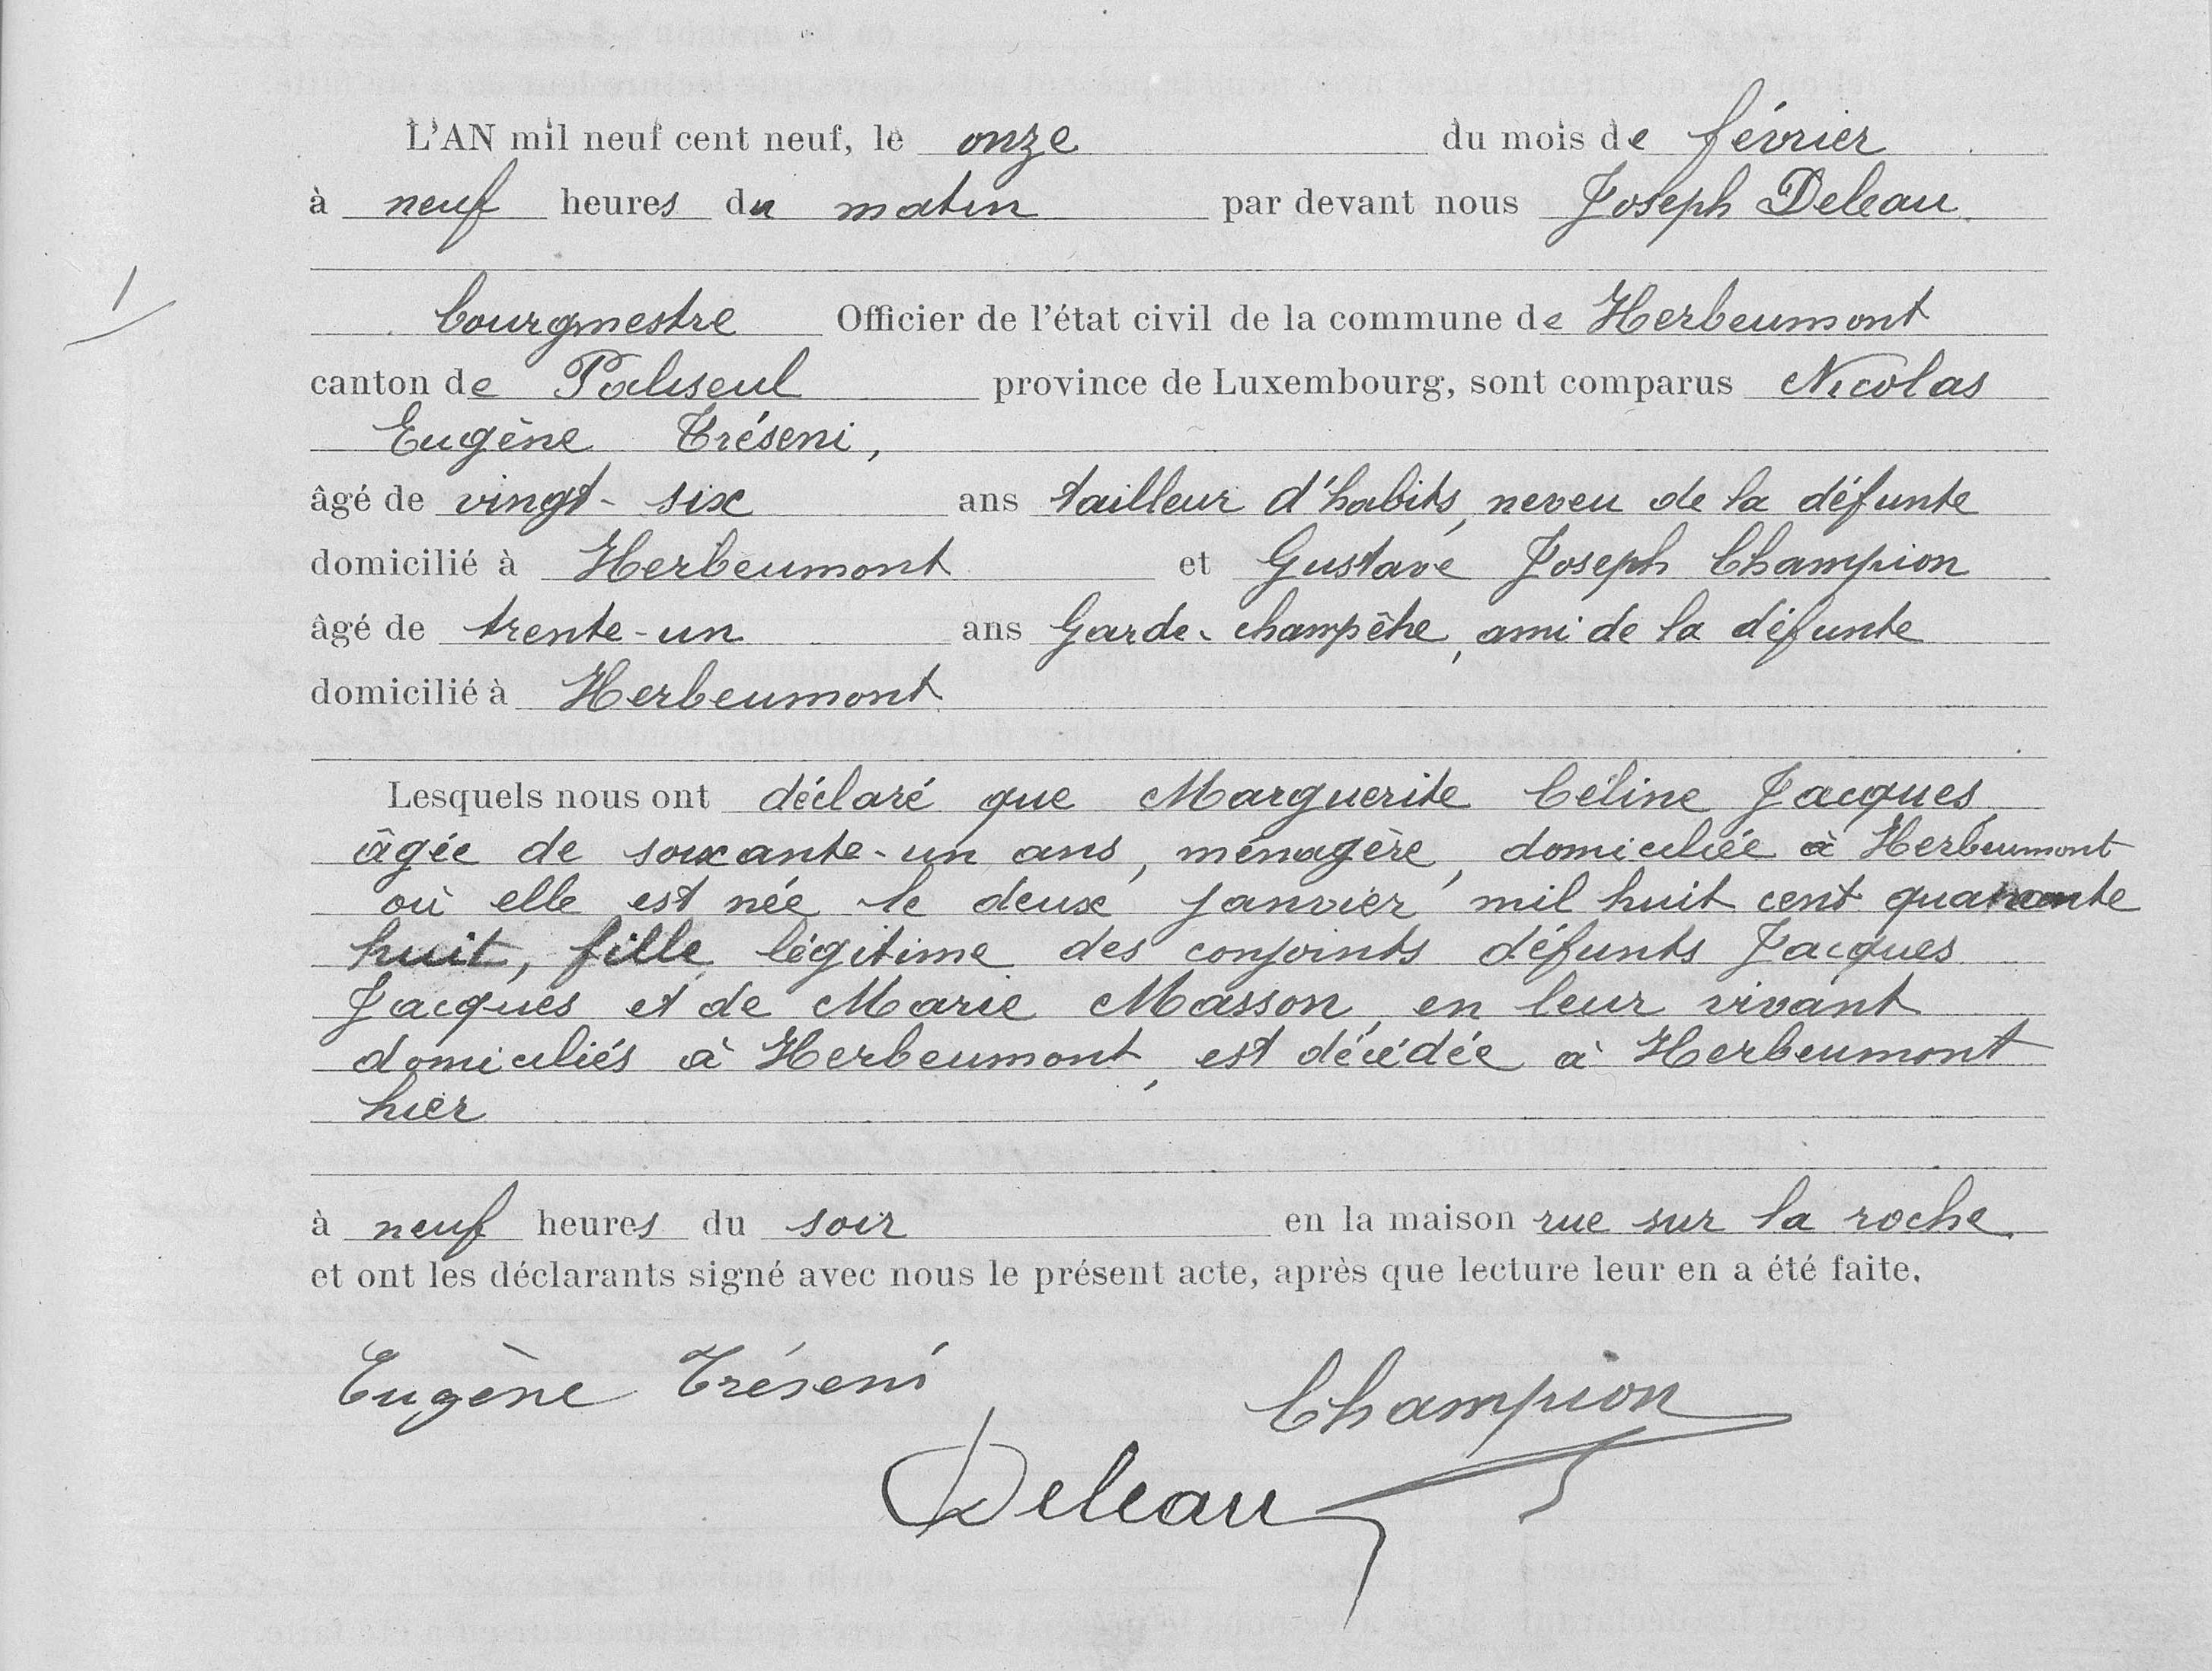 L'AN mil neuf cent neuf, le onze du mois de février
à neuf heures du matin par devant nous Joseph Deleau
bourgmestre Officier de l'état civil de la commune de Herbeumont
canton de Paliseul province de Luxembourg, sont comparus Nicolas
Eugène Tréseni,
âgé de vingt-six ans tailleur d'habits, neveu de la défunte
domicilié à Herbeumont et Gustave Joseph Champion
âgé de trente-un ans Garde-champêtre, ami de la défunte
domicilié à Herbeumont
Lesquels nous ont déclaré que Marguerite Céline Jacques
âgée de soixante-un ans, ménagère, domiciliée à Herbeumont
où elle est née le deux janvier mil huit cent quarante
huit, fille légitime des conjoints défunts Jacques
Jacques et de Marie Masson, en leur vivant
domiciliés à Herbeumont, est décédée à Herbeumont
hier
à neuf heures du soir en la maison rue sur la roche.
et ont les déclarants signé avec nous le présent acte, après que lecture leur en a été faite.
Eugène Tréseni Champion
Deleau